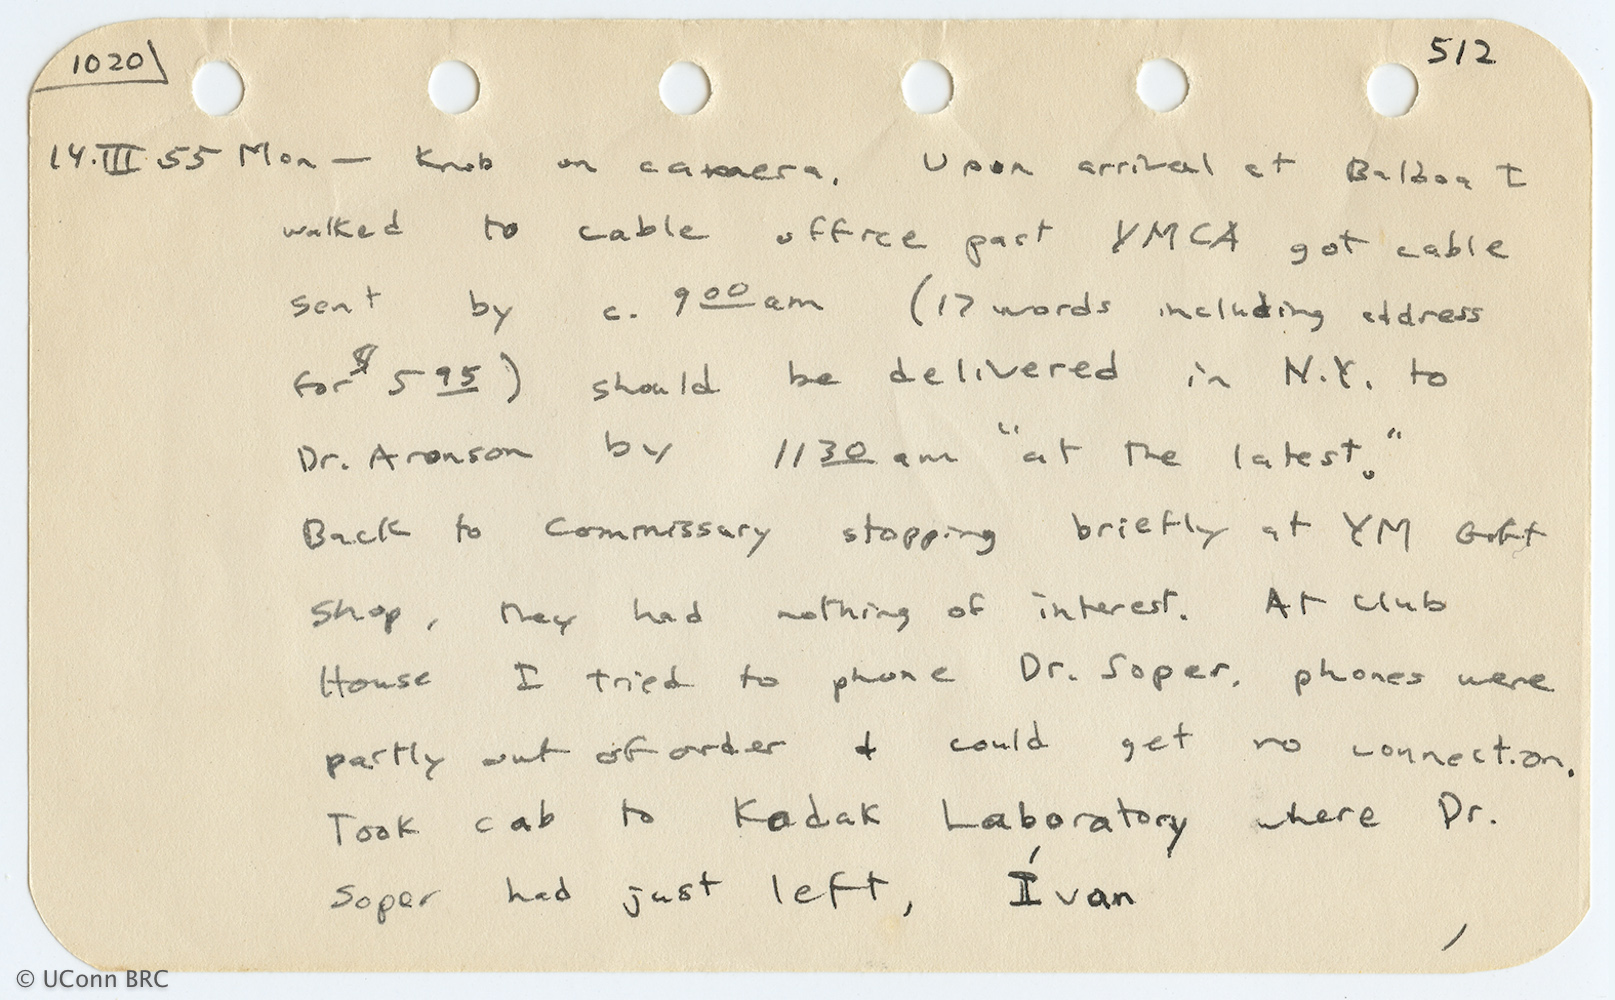 1020
512
14.III.55 Mon — Knob on camera. Upon arrival at Balboa I
walked to cable office past YMCA got cable
sent by c. 900 am (17 words including address
for $ 595) should be delivered in N.Y. to
Dr. Aronson by 1130 am "at the latest."
Back to Commissary stopping briefly at YM Gift
Shop, they had nothing of interest. At Club
House I tried to phone Dr. Soper, phones were
partly out of order & could get no connection.
Took cab to Kodak Laboratory where Dr.
Soper had just left, Ívan
© UConn BRC